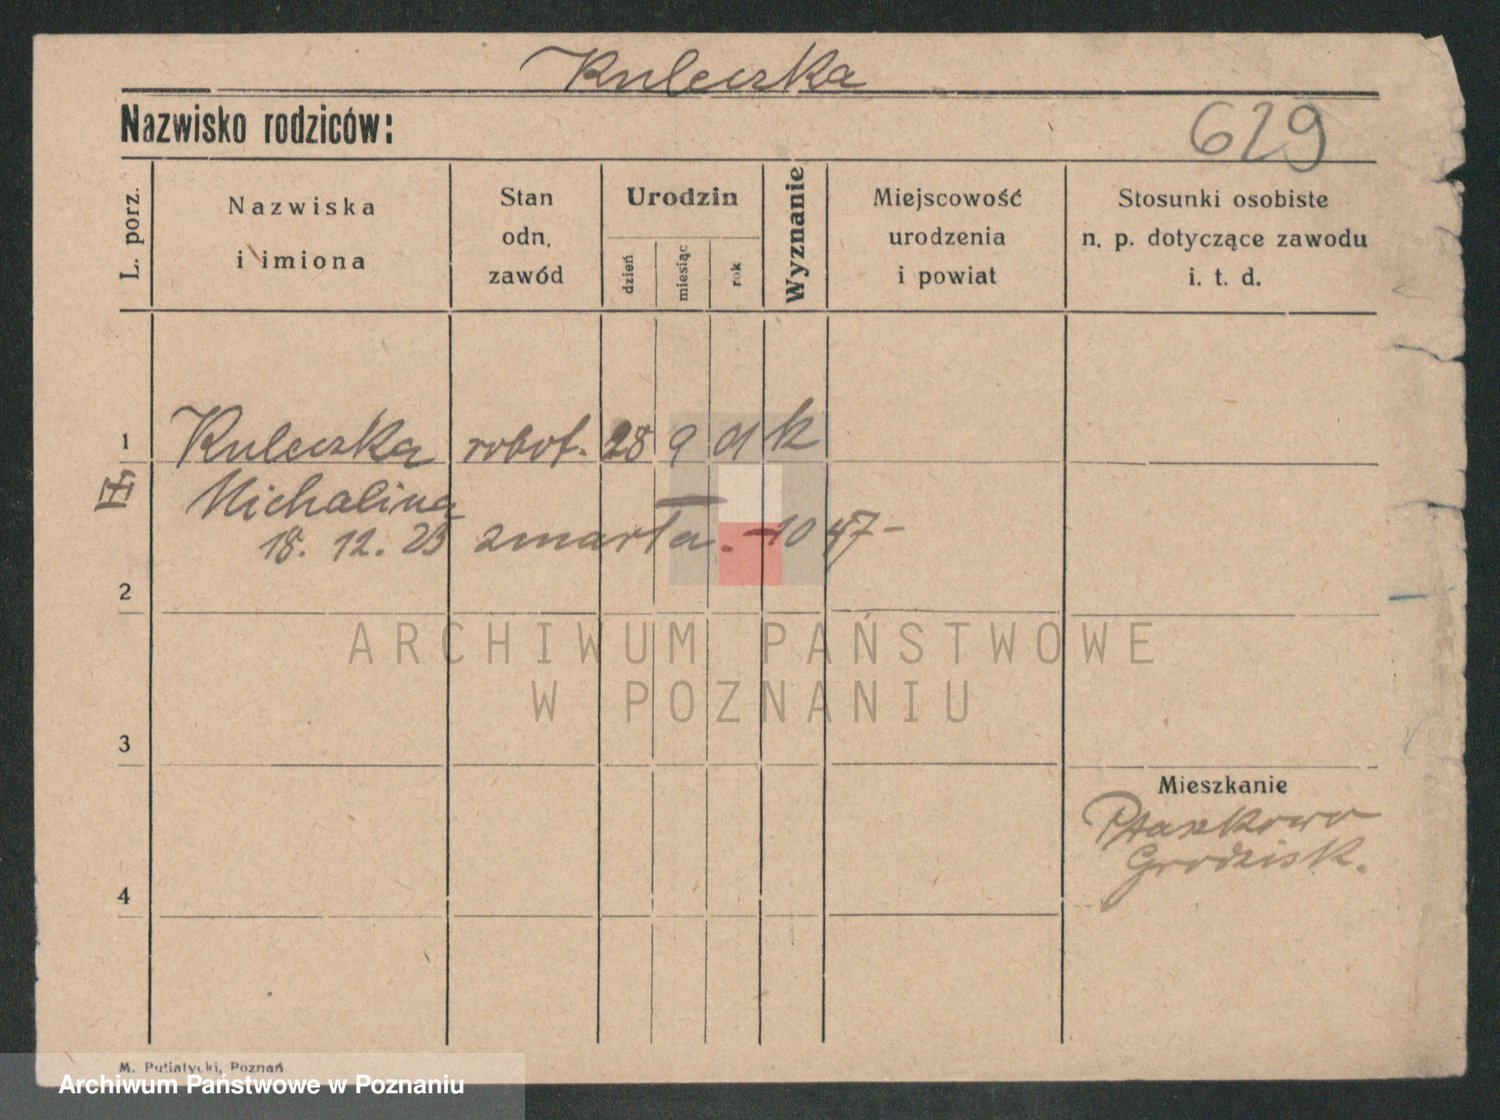 Kuleczka
Nazwisko rodziców:
629
L. porz.
Nazwiska
i imiona
Stan
odn.
zawód
Urodzin
dzień
miesiąc
rok
Wyznanie
Miejscowość
urodzenia
i powiat
Stosunki osobiste
n. p. dotyczące zawodu
i. t. d.
1
Kuleczka robot. 28 9 01 k
Michalina
18. 12. 23 zmarła. - 10 47-
2
ARCHIWUM PAŃSTWOWE
W POZNANIU
3
Mieszkanie
Ptaszkowo
Grodzisk.
4
M. Putiatycki, Poznań
Archiwum Państwowe w Poznaniu